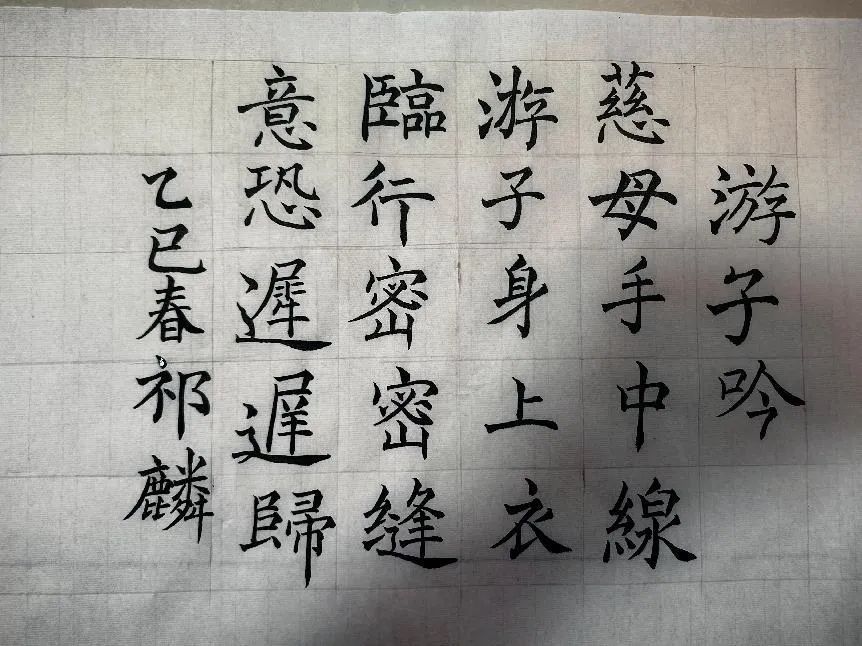 游子吟
慈母手中線
游子身上衣
臨行密密縫
意恐遲遲歸
乙巳春祁麟